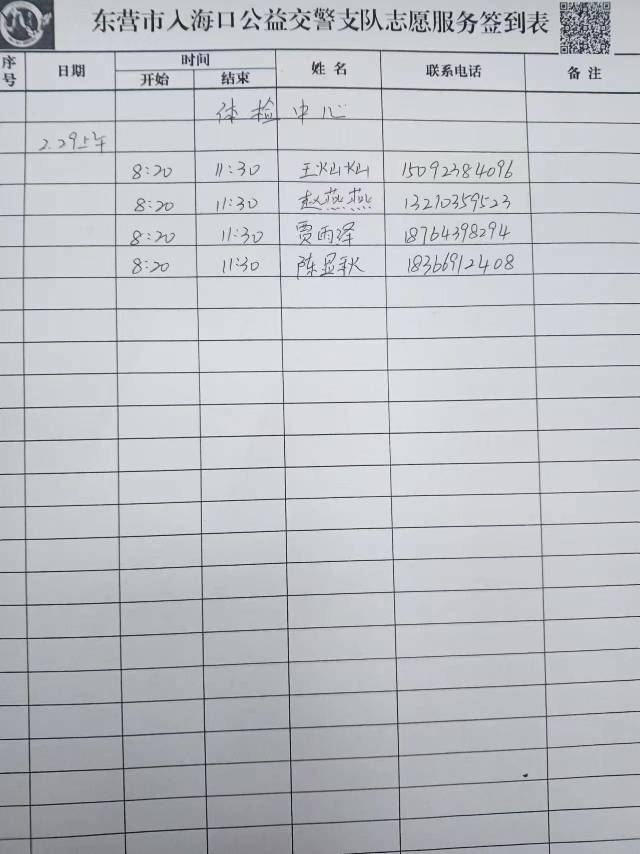 东营市入海口公益交警支队志愿服务签到表
序号 日期 时间 姓名 联系电话 备注
开始 结束
体检中心
2.29上午
8:20 11:30 王灿灿 15092384096
8:20 11:30 赵燕燕 13210359523
8:20 11:30 贾雨泽 18764398294
8:20 11:30 陈显秋 18366912408